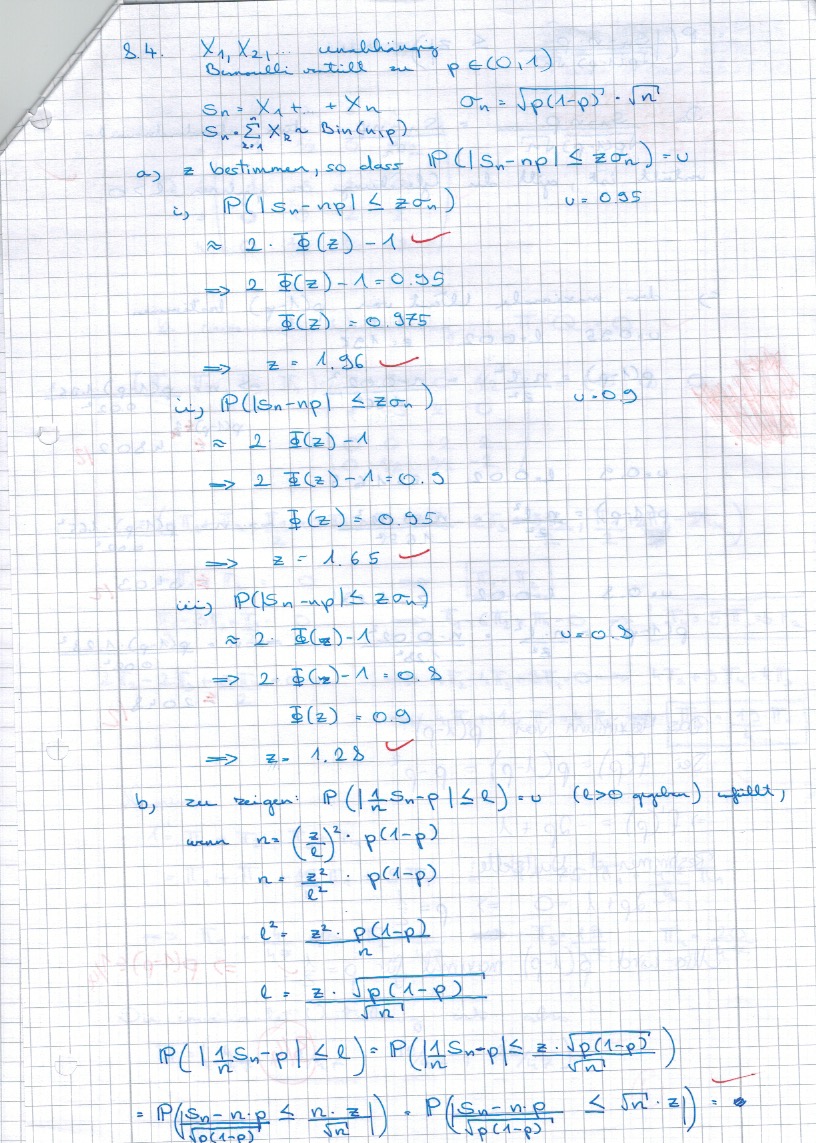 8.4. X₁, X₂, ... unabhängig
Bernoulli verteilt zu p ∈ (0,1)
Sₙ = X₁ + ... + Xₙ σₙ = √(p(1-p)) · √n
Sₙ = Σₖ₌₁ⁿ Xₖ ~ Bin(n,p)
a) z bestimmen, so dass ℙ(|Sₙ-np| ≤ zσₙ) = υ
i) ℙ(|Sₙ-np| ≤ zσₙ) υ = 0.95
≈ 2 · Φ(z) - 1
⇒ 2 Φ(z) - 1 = 0.95
Φ(z) = 0.975
⇒ z = 1.96
ii) ℙ(|Sₙ-np| ≤ zσₙ) υ = 0.9
≈ 2 · Φ(z) - 1
⇒ 2 Φ(z) - 1 = 0.9
Φ(z) = 0.95
⇒ z = 1.65
iii) ℙ(|Sₙ-np| ≤ zσₙ)
≈ 2 · Φ(z) - 1 υ = 0.8
⇒ 2 · Φ(z) - 1 = 0.8
Φ(z) = 0.9
⇒ z = 1.28
b) zu zeigen: ℙ(|1/n Sₙ - p| ≤ l) = υ (l > 0 gegeben) erfüllt,
wenn n = (z/l)² · p(1-p)
n = z²/l² · p(1-p)
l² = z² · p(1-p) / n
l = z · √(p(1-p)) / √n
ℙ(|1/n Sₙ - p| ≤ l) = ℙ(|1/n Sₙ - p| ≤ z · √(p(1-p)) / √n)
= ℙ(|Sₙ - n·p / √(p(1-p)) ≤ n · z / √n|) = ℙ(|Sₙ - n·p / √(p(1-p)) ≤ √n · z|) =